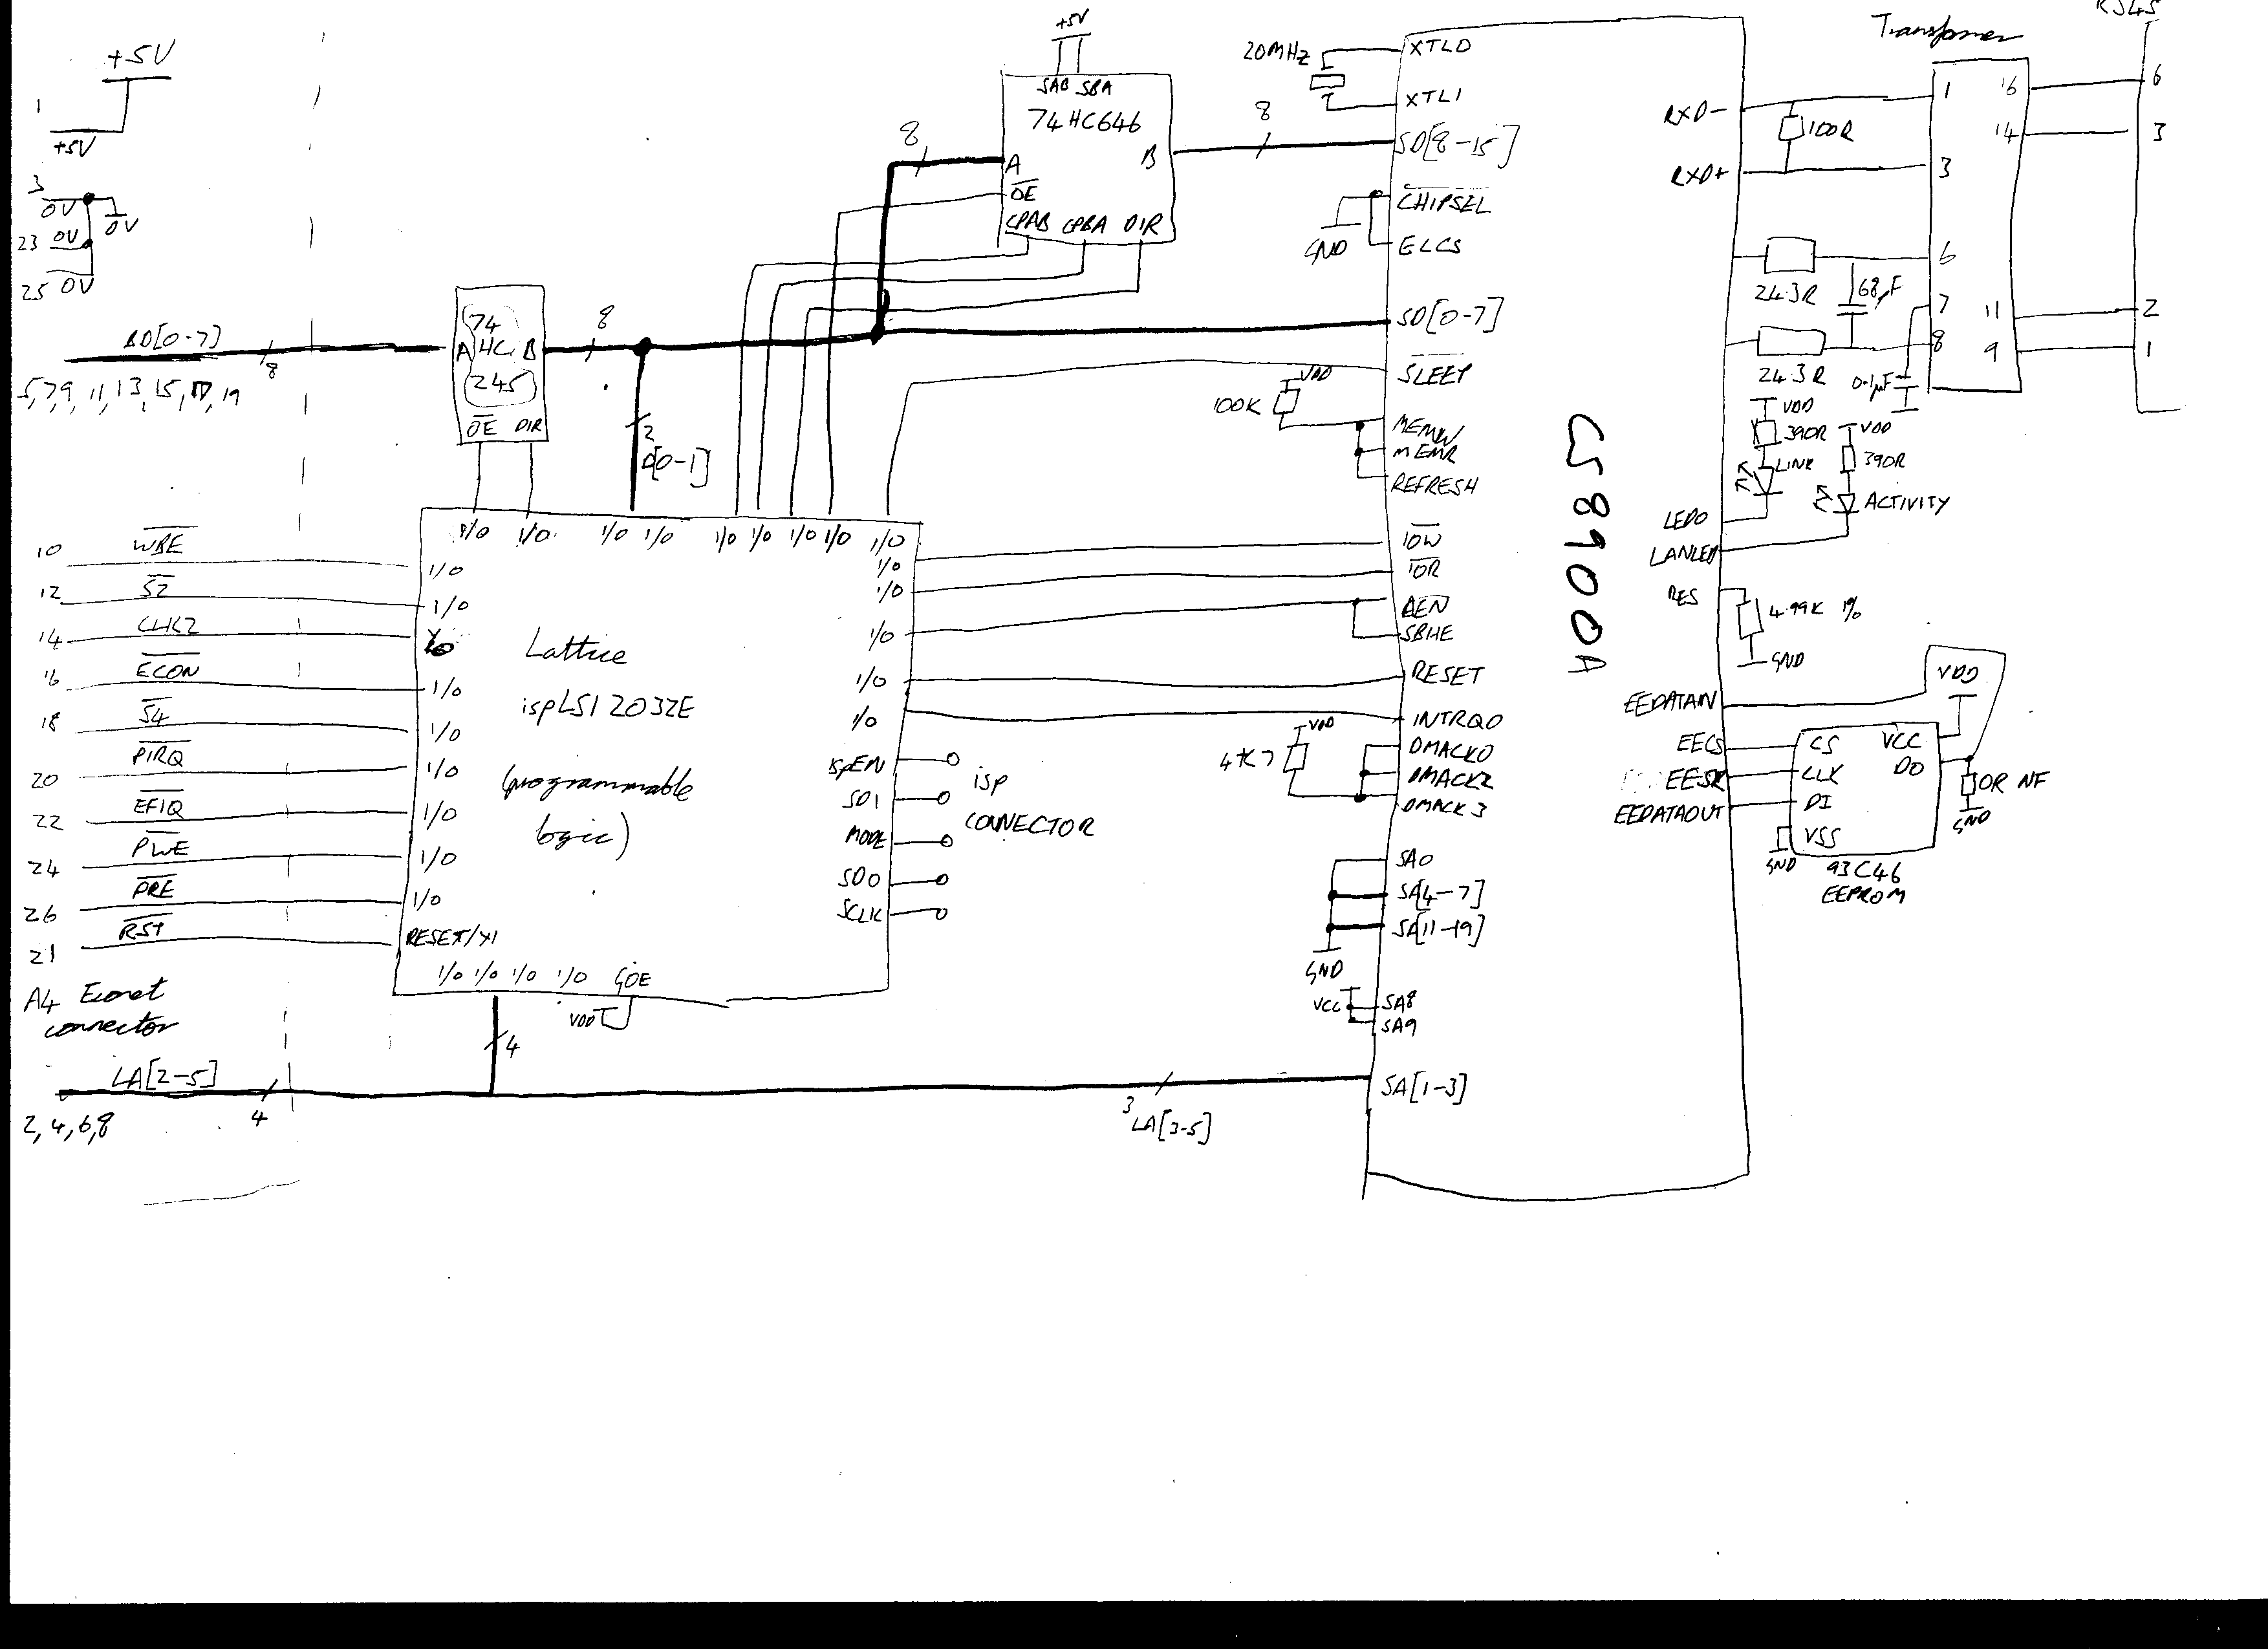 +5V
1
+5V
3
0V
0V
23 0V
25 0V
BD[0-7]
8
5,7,9, 11, 13, 15, 17, 19
74
A HC B
245
OE DIR
8
2
D[0-1]
+5V
SAB SBA
74HC646
8
A
B
OE
CPAB CPBA DIR
8
20MHz
XTLO
XTL1
SD[8-15]
CHIPSEL
GND
ELCS
SD[0-7]
SLEEP
VDD
100K
MEMW
MEMR
REFRESH
IOW
IOR
AEN
SBHE
RESET
INTRQ0
VDD
4K7
DMACK0
DMACK2
DMACK3
SA0
SA[4-7]
SA[11-19]
GND
VCC
SA8
SA9
SA[1-3]
3
LA[3-5]
CS8900A
10 WBE
12 S2
14 CLK2
16 ECON
18 S4
20 PIRQ
22 EFIQ
24 PWE
26 PRE
21 RST
A4 Econet
connector
LA[2-5]
4
2, 4, 6, 8
I/O I/O I/O I/O I/O I/O I/O I/O I/O
I/O
I/O
I/O
I/O
I/O
I/O
I/O
I/O
RESET/Y1
I/O I/O I/O I/O GOE
VDD
4
Lattice
ispLSI 2032E
(programmable
logic)
I/O
I/O
I/O
I/O
I/O
ispEN
SDI
MODE
SDO
SCLK
isp
CONNECTOR
RXD-
RXD+
100R
24.3R
68pF
24.3R
0.1µF
VDD
390R
LINK
VDD
390R
ACTIVITY
LED0
LANLED
RES
4.99K 1%
GND
EEDATAIN
EECS
EESK
EEDATAOUT
VDD
CS VCC
CLK DO
DI
VSS
GND
93C46
EEPROM
0R NF
GND
Transformer
1
3
6
7
8
16
14
11
9
RJ45
6
3
2
1